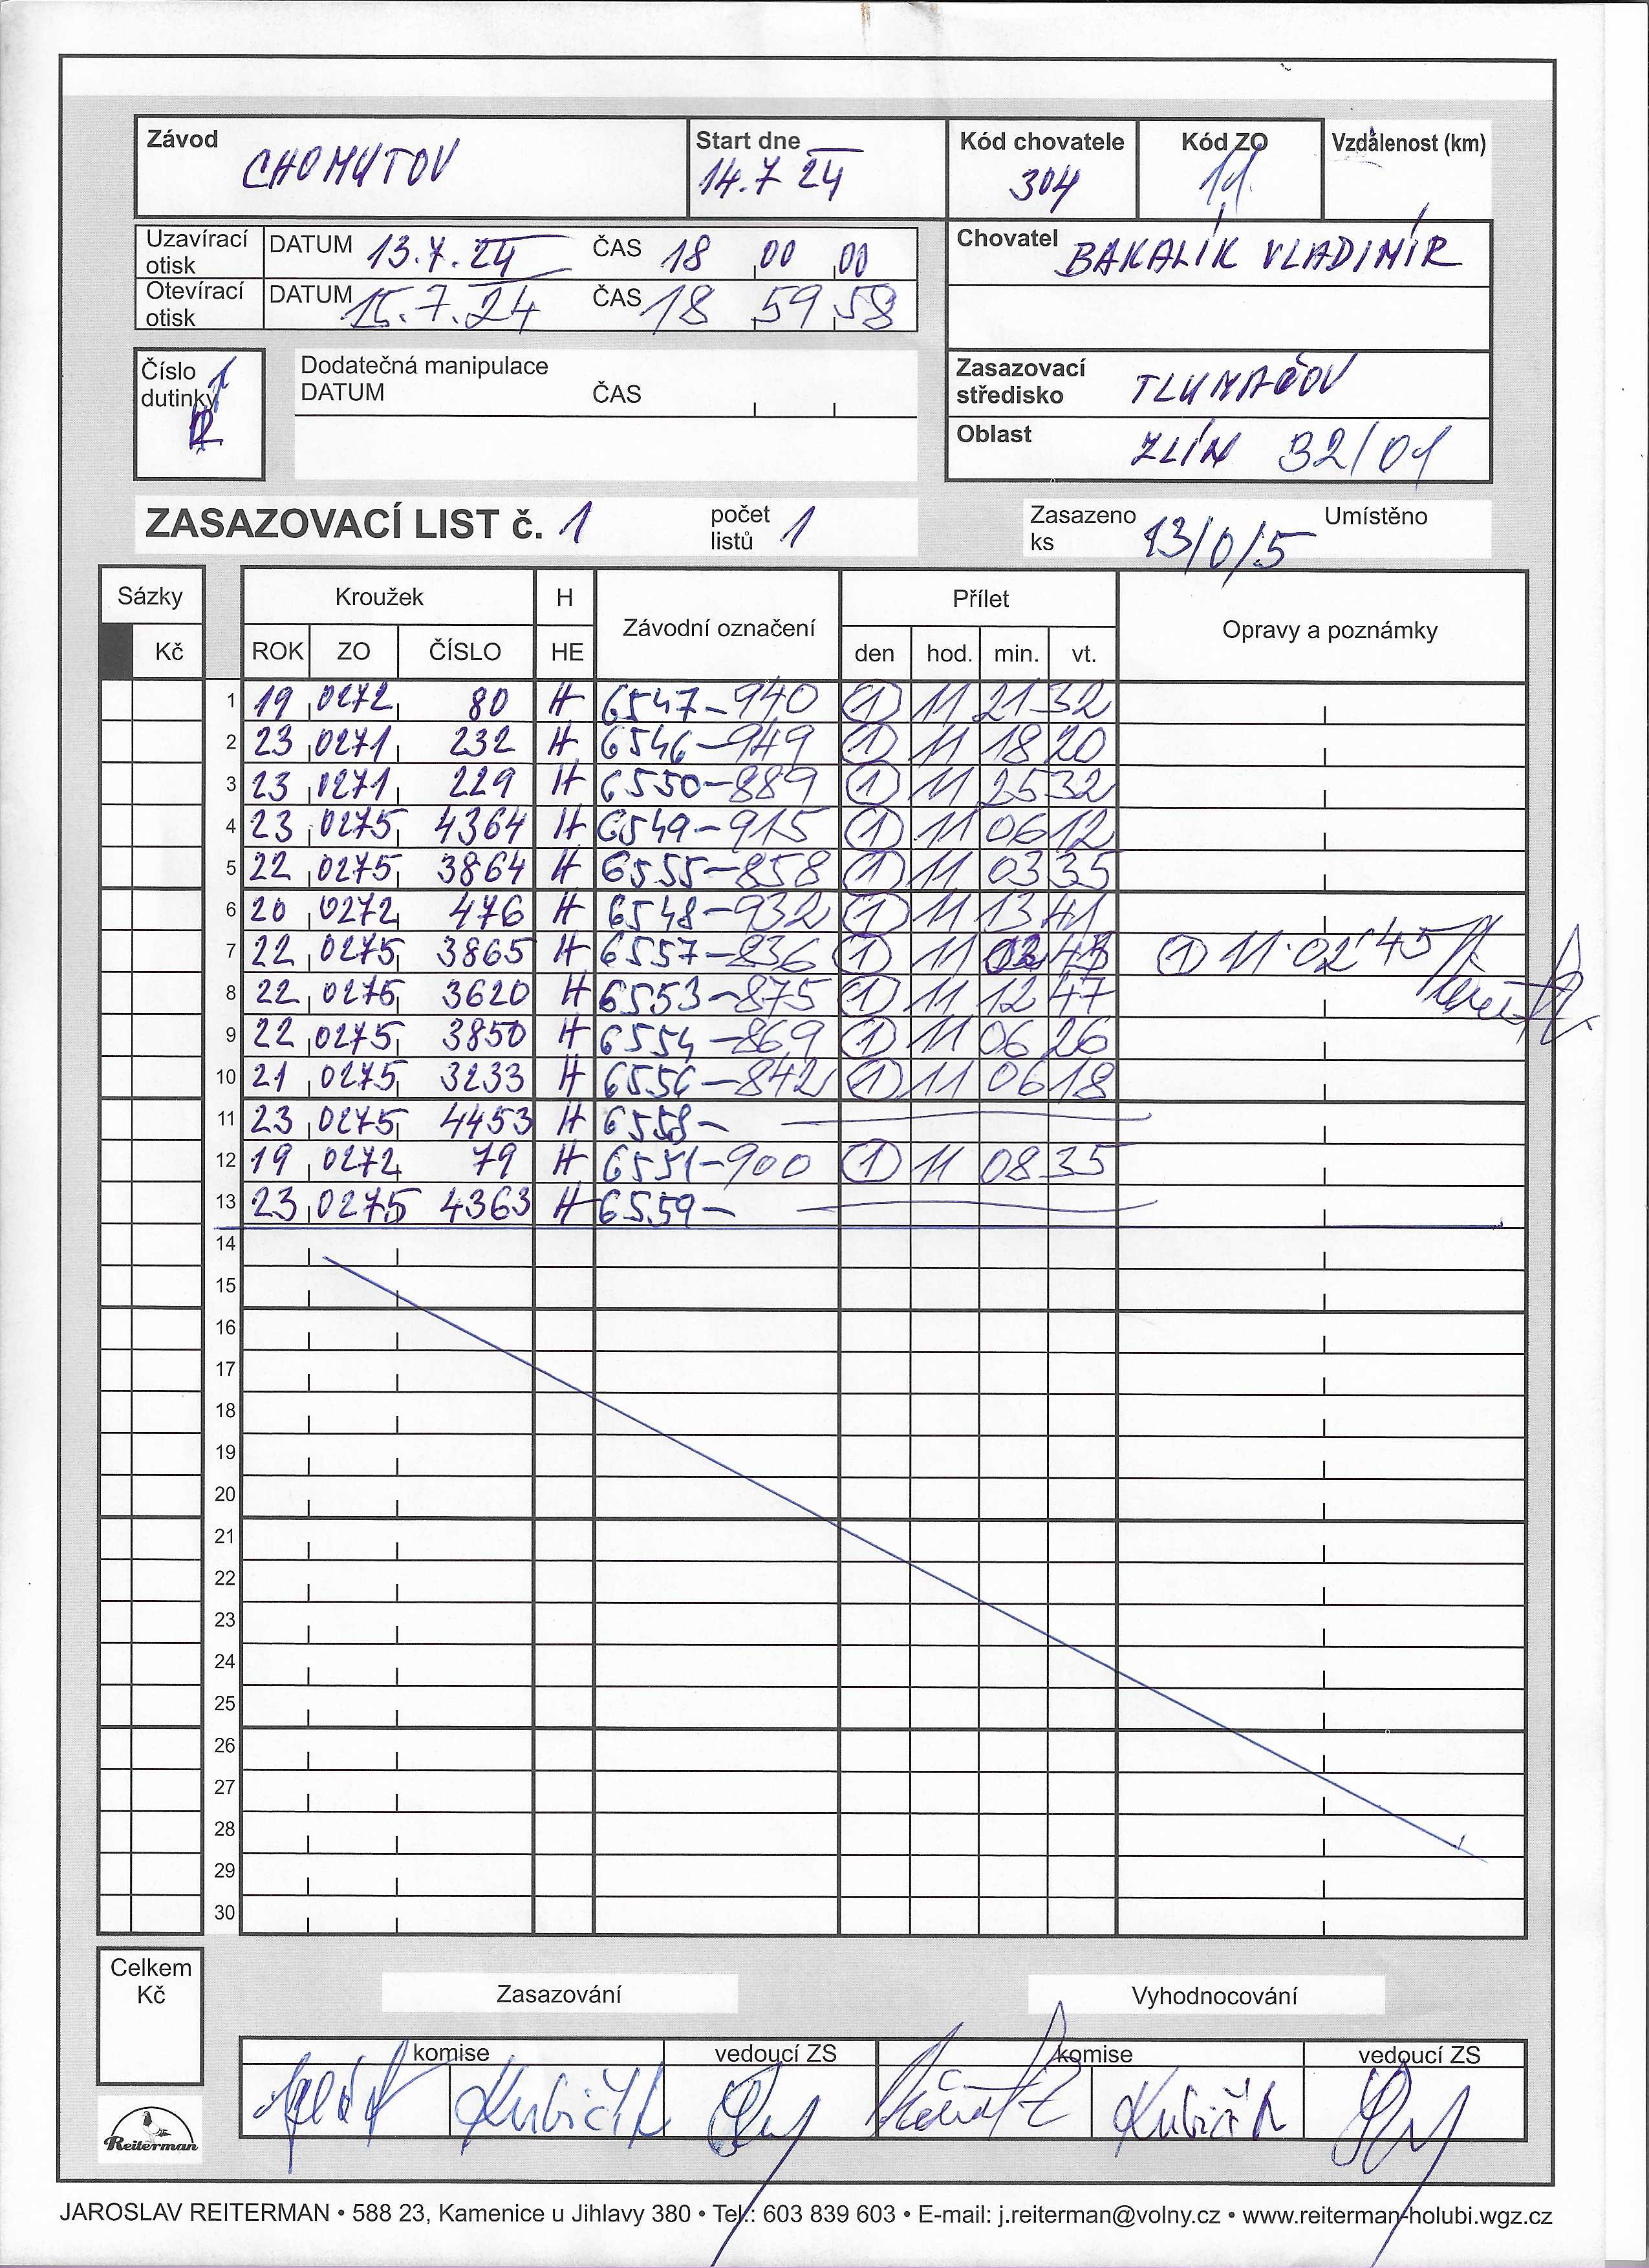 Závod CHOMUTOV
Start dne 14.7 24
Kód chovatele 304
Kód ZO 11
Vzdálenost (km)
Uzavírací otisk DATUM 13.7.24 ČAS 18 00 00
Otevírací otisk DATUM 15.7.24 ČAS 18 59 58
Chovatel BAKALÍK VLADIMÍR
Číslo dutinky 1
Dodatečná manipulace
DATUM ČAS
Zasazovací středisko TLUMAČOV
Oblast ZLÍN 32/01
ZASAZOVACÍ LIST č. 1 počet listů 1
Zasazeno ks 13/0/5 Umístěno
Sázky Kroužek H Závodní označení Přílet Opravy a poznámky
Kč ROK ZO ČÍSLO HE den hod. min. vt.
1 19 0272 80 H 6547-940 1 11 21 32
2 23 0271 232 H 6546-949 1 11 18 20
3 23 0271 229 H 6550-889 1 11 25 32
4 23 0275 4364 H 6549-915 1 11 06 12
5 22 0275 3864 H 6555-858 1 11 03 35
6 20 0272 476 H 6548-932 1 11 13 41
7 22 0275 3865 H 6557-836 1 11 02 1 11·02'45
8 22 0275 3620 H 6553-875 1 11 12 47
9 22 0275 3850 H 6554-869 1 11 06 26
10 21 0275 3233 H 6556-842 1 11 06 18
11 23 0275 4453 H 6558-
12 19 0272 79 H 6551-900 1 11 08 35
13 23 0275 4363 H 6559-
14
15
16
17
18
19
20
21
22
23
24
25
26
27
28
29
30
Celkem Kč
Zasazování Vyhodnocování
komise vedoucí ZS komise vedoucí ZS
Kubičík Kubičík
Reiterman
JAROSLAV REITERMAN • 588 23, Kamenice u Jihlavy 380 • Tel.: 603 839 603 • E-mail: j.reiterman@volny.cz • www.reiterman-holubi.wgz.cz